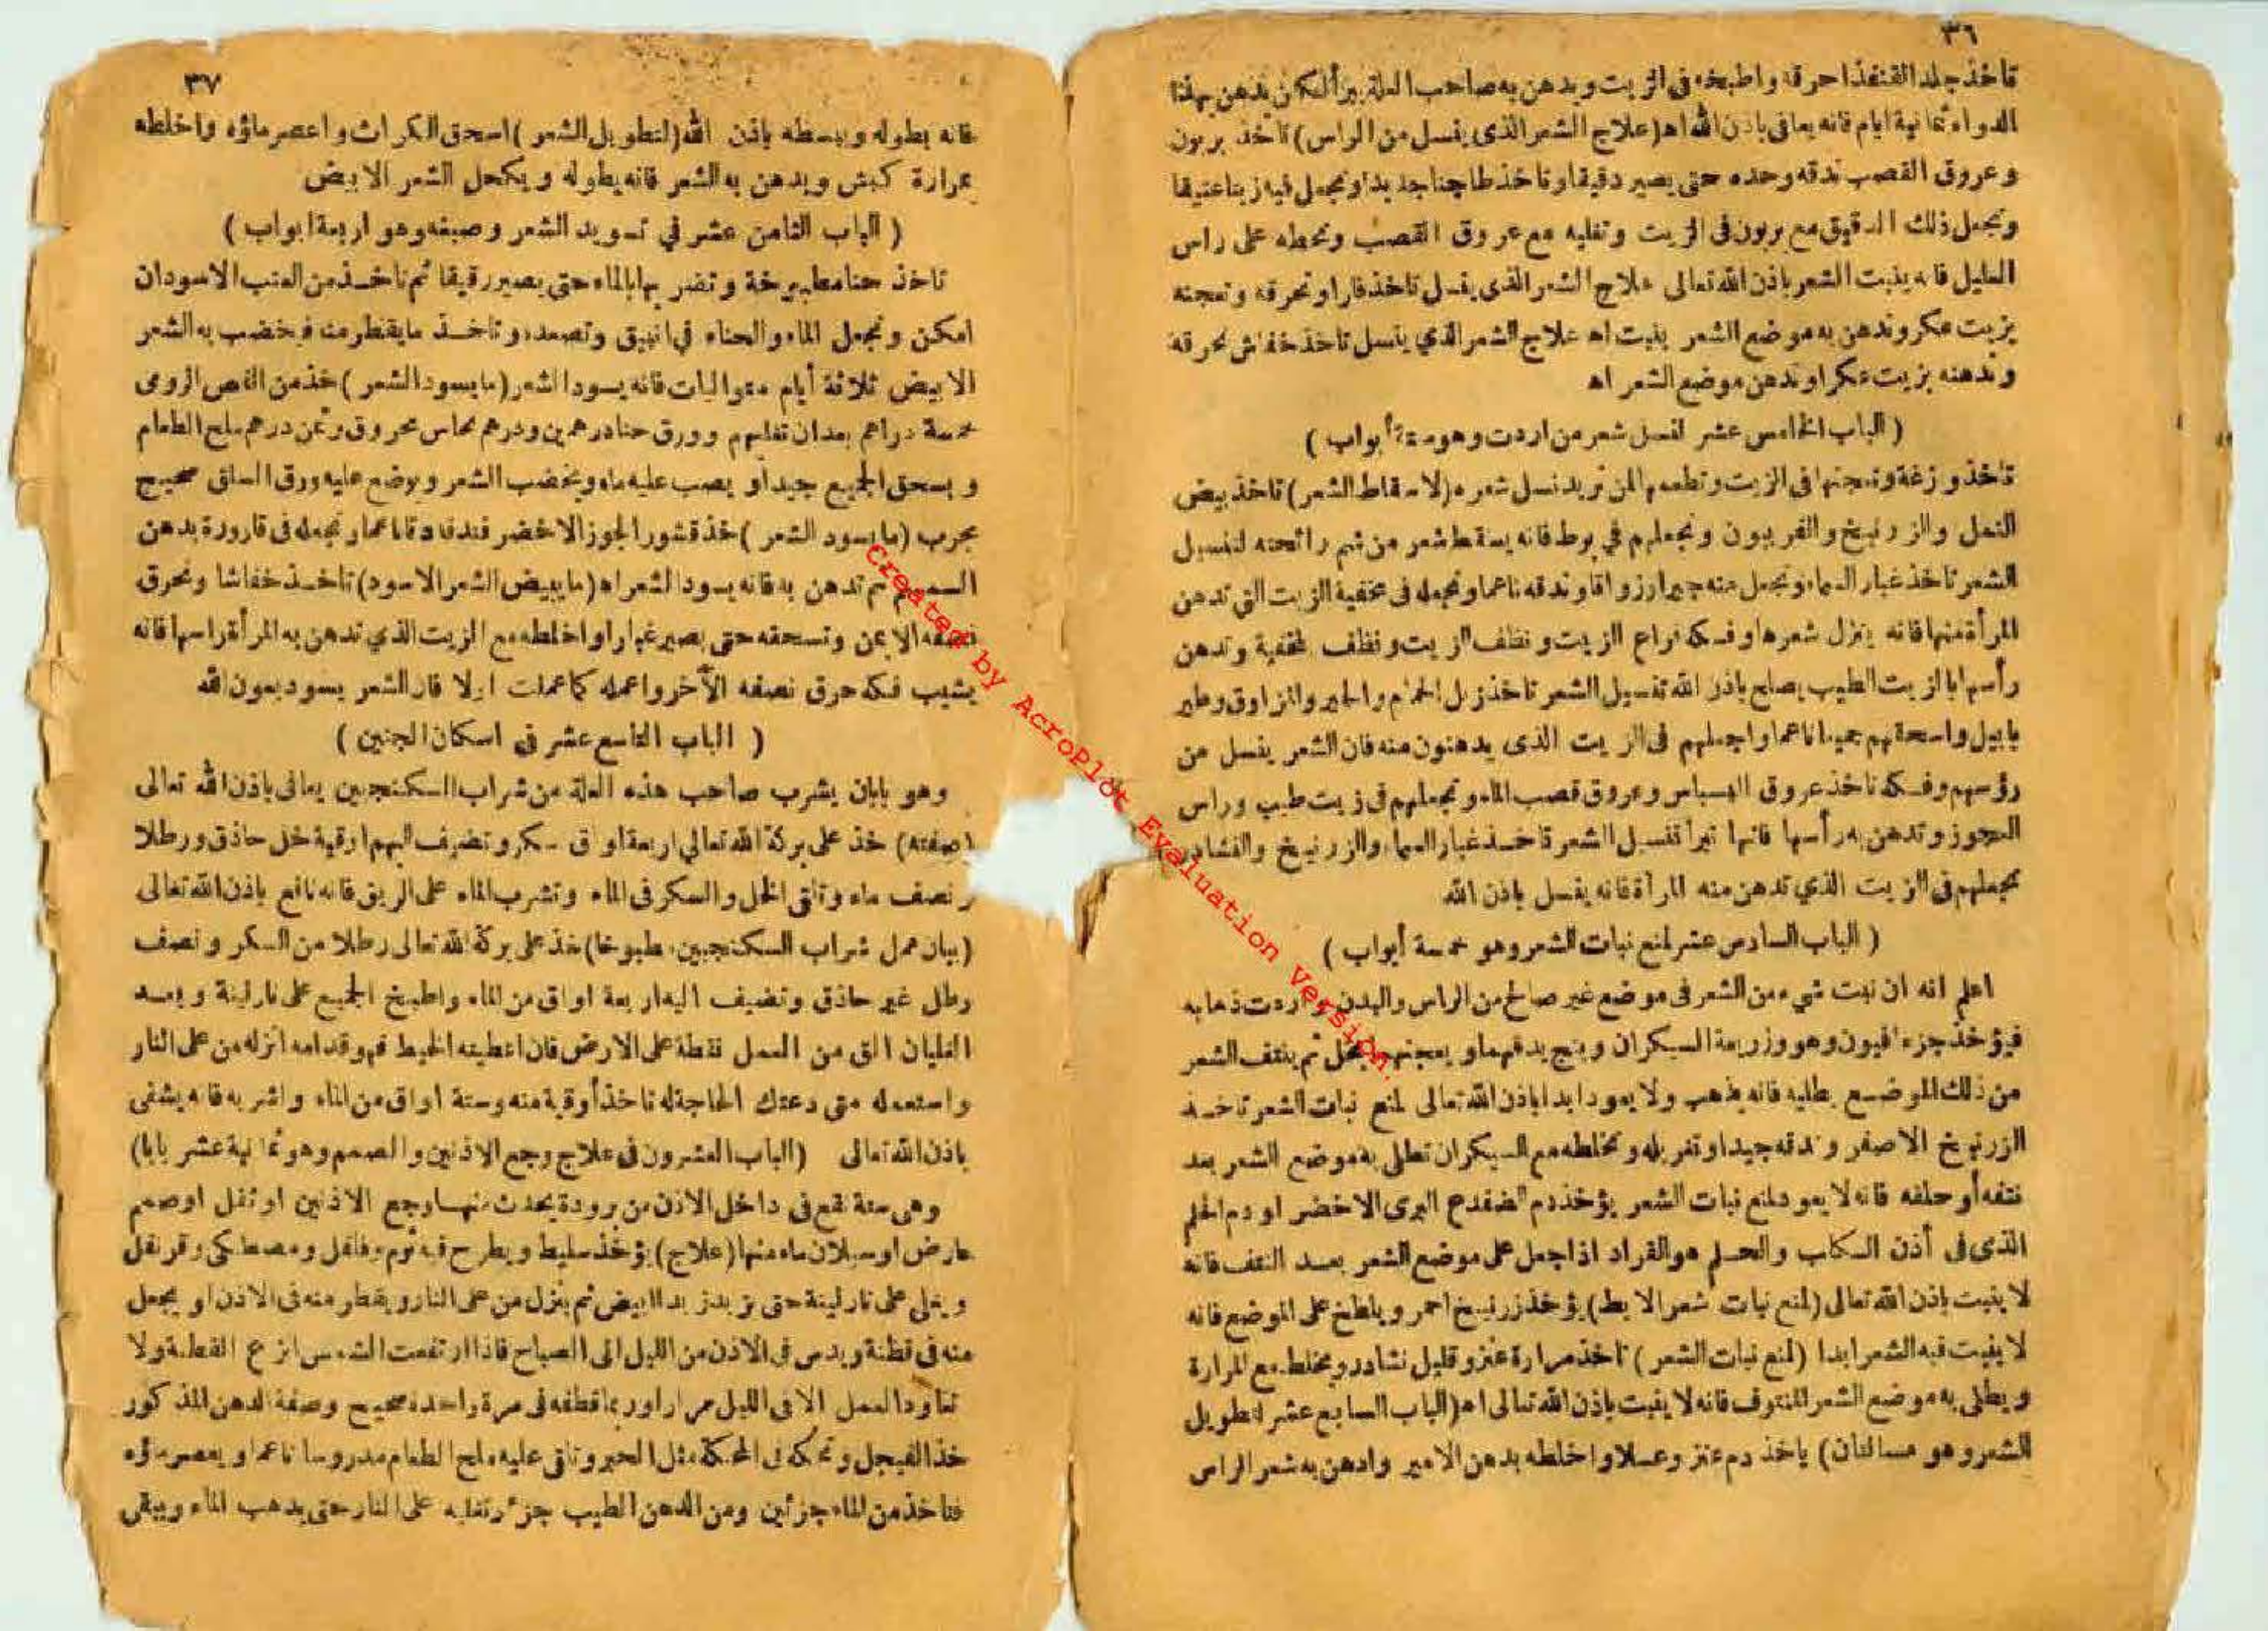 ٣٦
تاخذ جلد القنفذ احرقه واطبخه في الزيت ويدهن به صاحب العلة يبرأ لكن يدهن بهذا
الدواء ثمانية ايام فانه يعافى باذن الله اه (علاج الشعر الذى ينسل من الراس) تاخذ بربون
وعروق القصب تدقه وحده حتى يصير دقيقا وتاخذ طاجنا جديدا وتجعل فيه زيتا عتيقا
وتجعل ذلك الدقيق مع بربون فى الزيت وتغليه مع عروق القصب وتحطه على راس
العليل فانه ينبت الشعر باذن الله تعالى علاج الشعر الذى ينسل تاخذ فارا وتحرقه وتعجنه
بزيت عكر وتدهن به موضع الشعر ينبت اه علاج الشعر الذي ينسل تاخذ خفاش تحرقه
وتدهنه بزيت عكر او تدهن موضع الشعر اه
( الباب الخامس عشر لنسل شعر من اردت وهو ستة أبواب )
تاخذ وزغة وتعجنها فى الزيت وتطعمها لمن تريد نسل شعره (لاسقاط الشعر) تاخذ بيض
النمل والزرنيخ والفربيون وتجعلهم في بوط فانه يسقط شعر من شم رائحته لتنسيل
الشعر تاخذ غبار السماء وتجعل منه جيرا وزواقا وتدقه ناعما وتجعله فى مخفية الزيت التى تدهن
المرأة منها فانه ينزل شعرها وفكه نراع الزيت ونظف الزيت ونظف المخفية وتدهن
رأسها بالزيت الطيب يصلح باذن الله تنسيل الشعر تاخذ زبل الحمام والجير والزاوق وطير
بابيل واسحقهم جميعا ناعما واجعلهم فى الزيت الذى يدهنون منه فان الشعر ينسل من
رؤسهم وفكه تاخذ عروق البسباس وعروق قصب الماء وتجعلهم فى زيت طيب وراس
العجوز وتدهن به رأسها فانها تبرأ تنسيل الشعر تاخذ غبار السماء والزرنيخ والنشادر
تجعلهم فى الزيت الذي تدهن منه المرأة فانه ينسل باذن الله
( الباب السادس عشر لمنع نبات الشعر وهو خمسة أبواب )
اعلم انه ان نبت شيء من الشعر فى موضع غير صالح من الراس والبدن واردت ذهابه
فيؤخذ جزء افيون وهو وزريعة السيكران وبنج يدقهما ويعجنهم بخل ثم ينتف الشعر
من ذلك الموضع يطليه فانه يذهب ولا يعود ابدا باذن الله تعالى لمنع نبات الشعر تاخذ
الزرنيخ الاصفر وتدقه جيدا وتغربله وتخلطه مع السيكران تطلى به موضع الشعر بعد
نتفه أو حلقه فانه لا يعود لمنع نبات الشعر يؤخذ دم الضفدع البرى الاخضر او دم الحلم
الذى فى أذن الكلاب والحلم هو القراد اذا جعل على موضع الشعر بعد النتف فانه
لا ينبت باذن الله تعالى (لمنع نبات شعر الابط) يؤخذ زرنيخ احمر ويلطخ على الموضع فانه
لا ينبت فيه الشعر ابدا (لمنع نبات الشعر) تاخذ مرارة عنز وقليل نشادر ويخلط مع المرارة
ويطلى به موضع الشعر المنتوف فانه لا ينبت باذن الله تعالى اه (الباب السابع عشر لتطويل
الشعر وهو مسالتان) ياخذ دم عنز وعسلا واخلطه بدهن الامير وادهن به شعر الراس
٣٧
فانه يطوله ويبسطه باذن الله (لتطويل الشعر) اسحق الكراث واعصر ماؤه واخلطه
بمرارة كبش ويدهن به الشعر فانه يطوله ويكحل الشعر الابيض
( الباب الثامن عشر في تسويد الشعر وصبغه وهو اربعة ابواب )
تاخذ حنا مطيبرخة وتضر بها بالماء حتى يصير رقيقا ثم تاخذ من العنب الاسود ان
امكن وتجعل الماء والحناء في انبيق وتصعده وتاخذ ما يقطر منه فخضب به الشعر
الابيض ثلاثة أيام متواليات فانه يسود الشعر (ما يسود الشعر) خذ من العفص الرومى
خمسة دراهم بعد ان تغليهم وورق حنا درهمين ودرهم نحاس محروق وثمن درهم ملح الطعام
ويسحق الجميع جيدا ويصب عليه ماء ويخضب الشعر ويوضع عليه ورق السلق صحيح
مجرب (ما يسود الشعر) خذ قشور الجوز الاخضر فتدق دقا ناعما وتجعله فى قارورة بدهن
السمسم ثم تدهن به فانه يسود الشعر اه (ما يبيض الشعر الاسود) تاخذ خفاشا وتحرق
نصفه الايمن وتسحقه حتى يصير غبارا واخلطه مع الزيت الذي تدهن به المرأة راسها فانه
يشيب فكه حرق نصفه الآخر واعمله كما عملت اولا فان الشعر يسود بعون الله
( الباب التاسع عشر في اسكان الجنين )
وهو بابان يشرب صاحب هذه العلة من شراب السكنجبين يعافى باذن الله تعالى
(صفته) خذ على بركة الله تعالي اربعة اواق سكر وتضيف اليهم اوقية خل حاذق ورطلا
ونصف ماء وتلقى الخل والسكر فى الماء وتشرب الماء على الريق فانه نافع باذن الله تعالى
(بيان عمل شراب السكنجبين مطبوخا) خذ على بركة الله تعالى رطلا من السكر ونصف
رطل غير حاذق وتضيف اليه اربعة اواق من الماء واطبخ الجميع على نار لينة وبعد
الغليان الق من العمل نقطة على الارض فان اعطيته الخيط فهو قدامه انزله من على النار
واستعمله متى دعتك الحاجة له تاخذ أوقية منه وستة اواق من الماء واشربه فانه يشفى
باذن الله تعالى (الباب العشرون فى علاج وجع الاذنين والصمم وهو ثمانية عشر بابا)
وهى ستة تقع فى داخل الاذن من برودة يحدث منها وجع الاذنين او ثقل او صمم
عارض او سيلان ماء منها (علاج) يؤخذ سليط ويطرح فيه ثوم وفلفل ومصطكى وقرنفل
ويغلى على نار لينة حتى يزبد زبدا ابيض ثم ينزل من على النار ويقطر منه فى الاذن او يجعل
منه فى قطنة ويدس فى الاذن من الليل الى الصباح فاذا ارتفعت الشمس انزع القطنة ولا
تعاود العمل الا فى الليل مرارا وربما قطفه فى مرة واحدة صحيح وصفة الدهن المذكور
خذ الفيجل وتحكه فى المحكة مثل الحبر وتلقى عليه ملح الطعام مدروسا ناعما ويعصر ماؤه
فتاخذ من الماء جزئين ومن الدهن الطيب جزء وتغليه على النار حتى يذهب الماء ويبقى
Created by AcroPlot Evaluation Version.